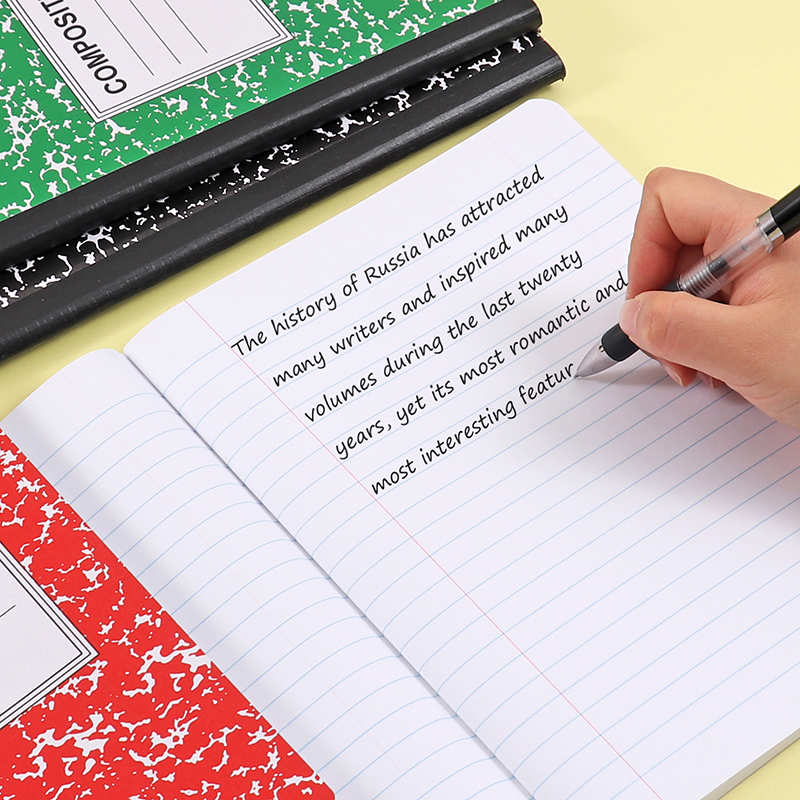 COMPOSITI
The history of Russia has attracted
many writers and inspired many
volumes during the last twenty
years, yet its most romantic and
most interesting featur